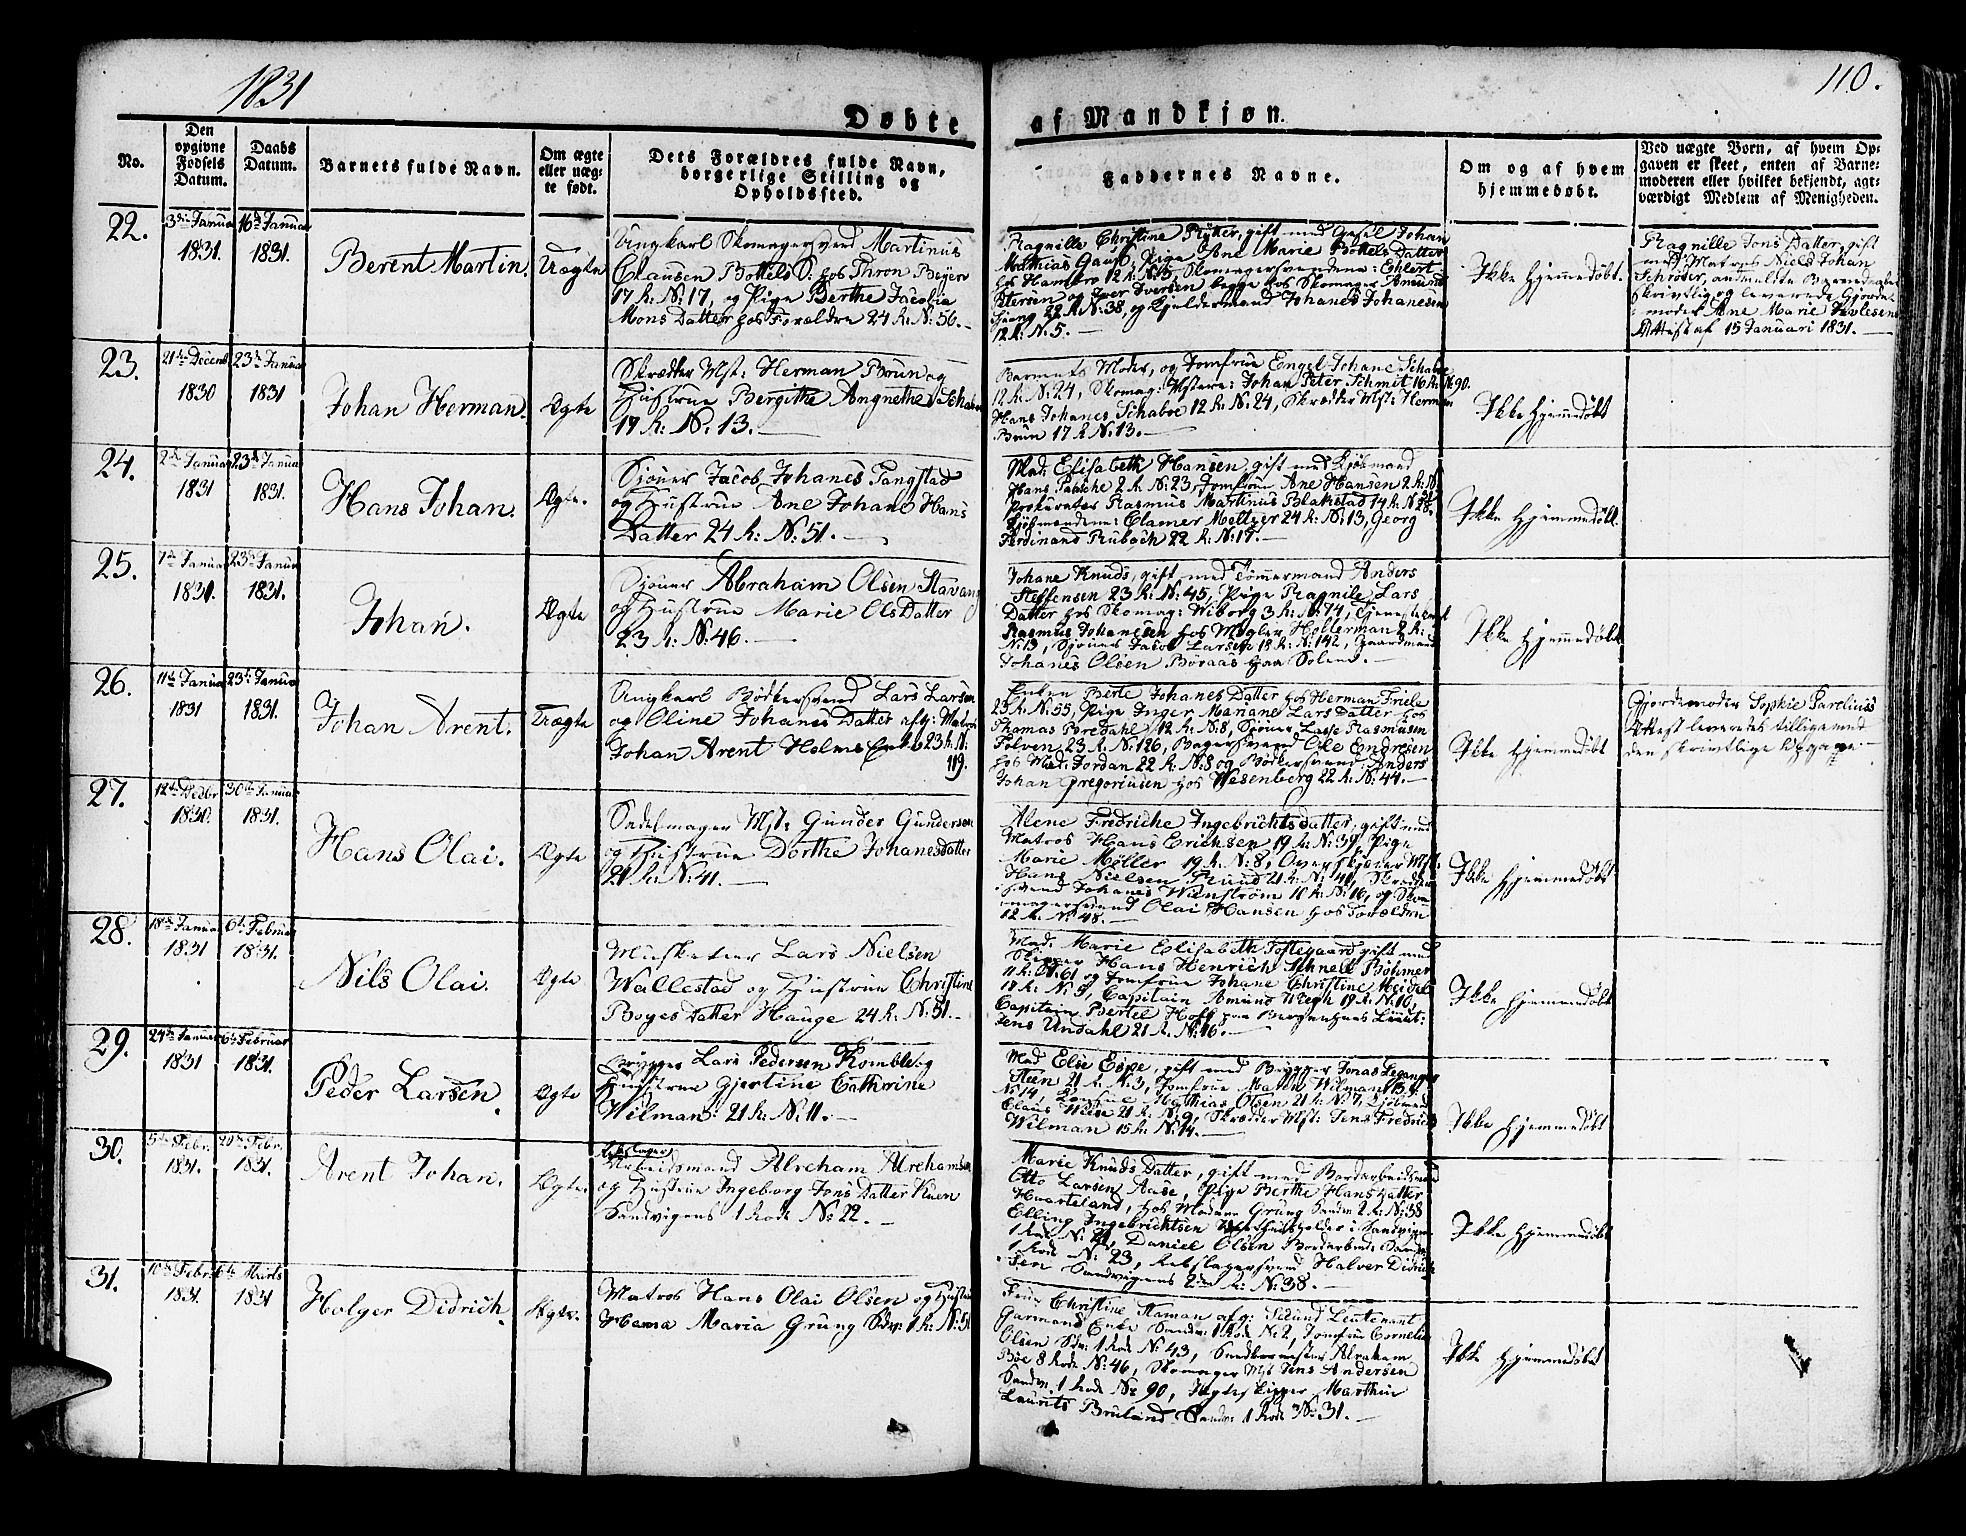 1831
110.
Døbte af Mandkjøn.
No.
Den opgivne Fødsels Datum.
Daabs Datum.
Barnets fulde Navn.
Om ægte eller uægte født.
Dets Forældres fulde Navn, borgerlige Stilling og Opholdssted.
Faddernes Navne.
Om og af hvem hjemmedøbt.
Ved uægte Børn, af hvem Opgaven er skeet, enten af Barnemoderen eller hvilket bekjendt, agtværdigt Medlem af Menigheden.
22.
3die Januar
1831.
16de Januar
1831.
Berent Martin.
Uægte
Ungkarl Skomagersvend Martinus
Clausen Bottels S. hos Thron Beyer
17 R: N: 17, og Pige Berthe Jacobia
Mons Datter hos Forældre 24 R: N: 56.
Ragnille Christine Rütter, gift med Johan
Mathias Gaus, Pige Ane Marie Bottels Datter
hos Hambro 12 R. N: 5, Skomagersvendene: Ehlert
Petersen og Iver Iversen begge hos Skomager Amund
22 R: N: 38, og Kjeldermand Johanes Johanesen
12 R. N. 5.
Ikke hjemmedøbt.
Ragnille Jons Datter, gift
med Matros Niels Johan
Schrøder, anmeldte Barnefader
skrivtlig og leverede Gjorde-
moder Ane Marie
Attest af 15 Januari 1831.
23.
21de Decemb
1830
23de Januar
1831
Johan Herman.
Ægte
Skrædder Mst: Herman Brun og
Hustrue Bergithe Angnethe Schabo
17 R: N. 13.
Barnets Moder, og Jomfrue Engel Johane Schaboe
12 R. N: 24, Skomag: Mstere: Johan Peter Schmit 16 R. N. 90.
Hans Johanes Schaboe 12 R: N: 24, Skrædder Mst: Herman
Brun 17 R N. 13.
Ikke hjemmedøbt
24.
2de Januar
1831
23de Januar
1831.
Hans Johan.
Ægte.
Sjouer Jacob Johanes Tangstad
og Hustrue Ane Johane Hans
Datter 24 R: N: 51.
Mad: Elisabeth Hansen, gift med Kjøbmand
Hans 2 R. N: 23, Jomfrue Ane Hansen 2 R. N
Prokurator Rasmus Martinus Blakstad 14 R. N 28.
Kjøbmændene: Clamer Meltzer 24 R: N: 13, Georg
Ferdinand Rubach 22 R. N: 17.
Ikke hjemmedøbt.
25.
7de Januar
1831.
23de Januar
1831.
Johan.
Ægte
Sjouer Abraham Olsen Stavang
og Hustrue Marie Ols Datter
23 R: N: 46.
Johane Knuds, gift med Tømmermand Anders
Steffensen 23 R: N: 45, Pige Ragnile Lars
Datter hos Skomag: Wiborg 3 R. N: 74, Tjenestekarl
Rasmus Johanesen hos Mægler Hollerman 2 R:
N: 13, Sjouer Jacob Larsen 18 R: N: 142, Gaardmand
Johanes Olsen Boraas paa Solem.
Ikke hjemmedøbt
26.
11te Januar
1831
23de Januar
1831.
Johan Arent.
Uægte
Ungkarl Bødkersvend Lars Larsen
og Oline Johanes Datter afg: Matros
Johan Arent Holms Enke 23 R. N:
119.
Enken Berte Johanes Datter hos Herman Friele
23 R. N: 55, Pige Inger Mariane Lars Datter hos
Thomas Bredahl 12 R. N: 8, Sjouer Lasse Rasmusen
Folven 23 R. N: 126, Bagersvend Ole Endresen
hos Mad: Jordan 22 R: N: 8 og Bødkersvend: Anders
Johan Gregoriusen hos Wesenberg 22 R: N: 44.
Ikke hjemmedøbt
Gjordemoder Sophie Parelius
Attest leveredes tilligemed
den skrivtlige Opgave
27.
12te Decbr
1830.
30te Januar
1831.
Hans Olai.
Ægte
Sadelmager Mst: Gunder Gundersen
og Hustrue Dorthe Johanesdatter
21 R: N: 41.
Alene Fredriche Ingebrichtsdatter, gift med
Matros Hans Erichsen 19 R: N: 39, Pige
Marie Møller 19 R. N: 8, Mst:
Hans Nielsen Rund 21 R: N: 40, Skrædder-
svend Johanes Wenstrøm 10 R. N: 16, og Sko-
magersvend Olai Hansen hos Forældre
12 R. N: 48.
Ikke hjemmedøbt
28.
18de Januar
1831
6te Februar
1831.
Nils Olai.
Ægte
Musketeer Lars Nielsen
Wallestad og Hustrue Christine
Boyes Datter Hauge 24 R: N: 51.
Mad: Marie Elisabeth Toftegaard, gift med
Skipper Hans Henrich Schnell Bøhmer
11 R: N: 61 og Jomfrue Johane Christine Meidel
18 R: N: 5, Capitain Amund 19 R. N: 10,
Capitain Bertel Hoff paa Bergenhuus Lieut:
Jens Undahl 21 R. N: 16.
Ikke hjemmedøbt
29.
24de Januar
1831
6te Februar
1831.
Peder Larsen.
Ægte
Brygger Lars Pedersen Romble og
Hustrue Gjertine Cathrine
Wilman: 21 R: N: 11.
Mad Else Espe, gift med Brygger Jonas Leganger
Steen 21 R. N. 3, Jomfrue Wilman 15 R.
N: 14, Mathias Olsen 21 R. N: 7, Kjøbmand
Claus Wiese 21 R. N: 9, Skrædder Mst: Jens Fredrich
Wilman 15 R: N: 14.
Ikke hjemmedøbt
30.
5te Febr.
1831.
20de Febr.
1831.
Arent Johan.
Ægte.
Rebslager
Arbeidsmand Abreham Abrehamsen
og Hustrue Ingeborg Jons Datter Kuen
Sandvigens 1 Rode No 22.
Marie Knuds Datter, gift med Bordarbeidsmand
Otto Larsen Aase, Pige Berthe Hans Datter
Huarteland, hos Madame Grung Sandv 2 R: N: 38
Elling Ingebrichtsen i Sandvigen
1 Rode N: 21, Daniel Olsen Bordarbeid: Sandv
1 Rode N: 23, Rebslagersvend Halver Didrich-
sen Sandvigens 2den R: N: 38.
Ikke hjemmedøbt
31.
10de Febr.
1831.
6te Marts
1831
Holger Didrich.
Ægte.
Matros Hans Olai Olsen og Hustrue
Hama Maria Grung Sdv: 1 R: N: 51
Frue Christine Haman afg: Lieutenant
Garmans Enke Sandv: 1 Rode N: 2, Jomfrue Cornelia
Olsen Sdv: 1 Rode N: 43, Abraham
Bøe 8 Rode N: 46, Skomager Mst Jens Andersen
Sandv. 1 Rode No 90, Marthin
Laurits Bruland. Sandv: 1 Rode No 31.
Ikke hjemmedøbt